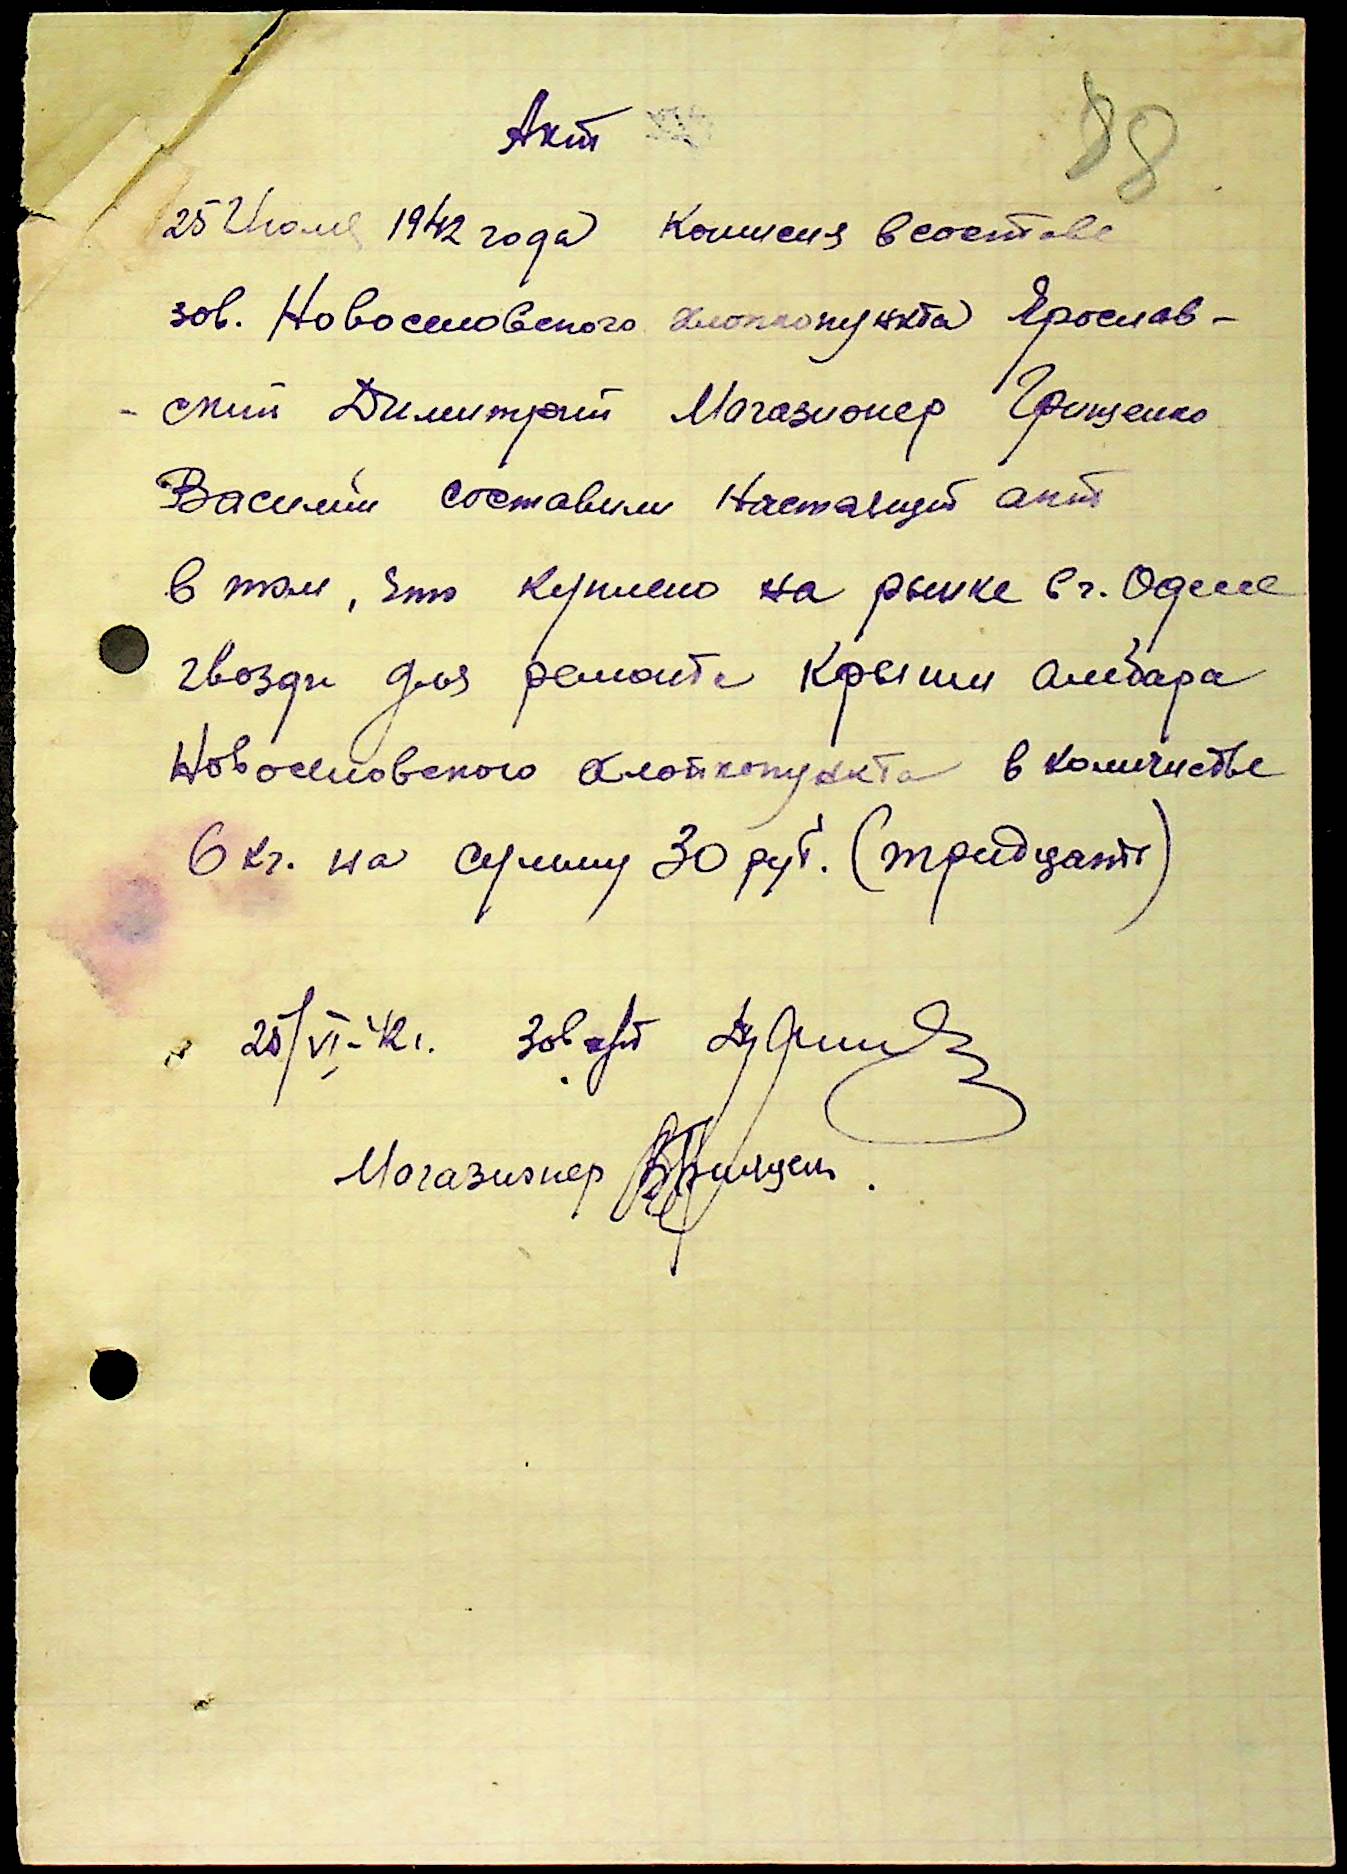 Акт
88
25 Июня 1942 года Комисия в составе
зав. Новоселовского хлопкопункта Ярослав-
- ский Димитрий Магазионер Грищенко
Василий составили Настаящий акт
в том, что куплено на рынке в г. Одессе
гвозди для ремонта Крыши амбара
Новоселовского хлопкопункта в количестве
6 кг. на сумму 30 руб. (тридцать)
25/VI-42 г. Зав
Магазионер В Грищен